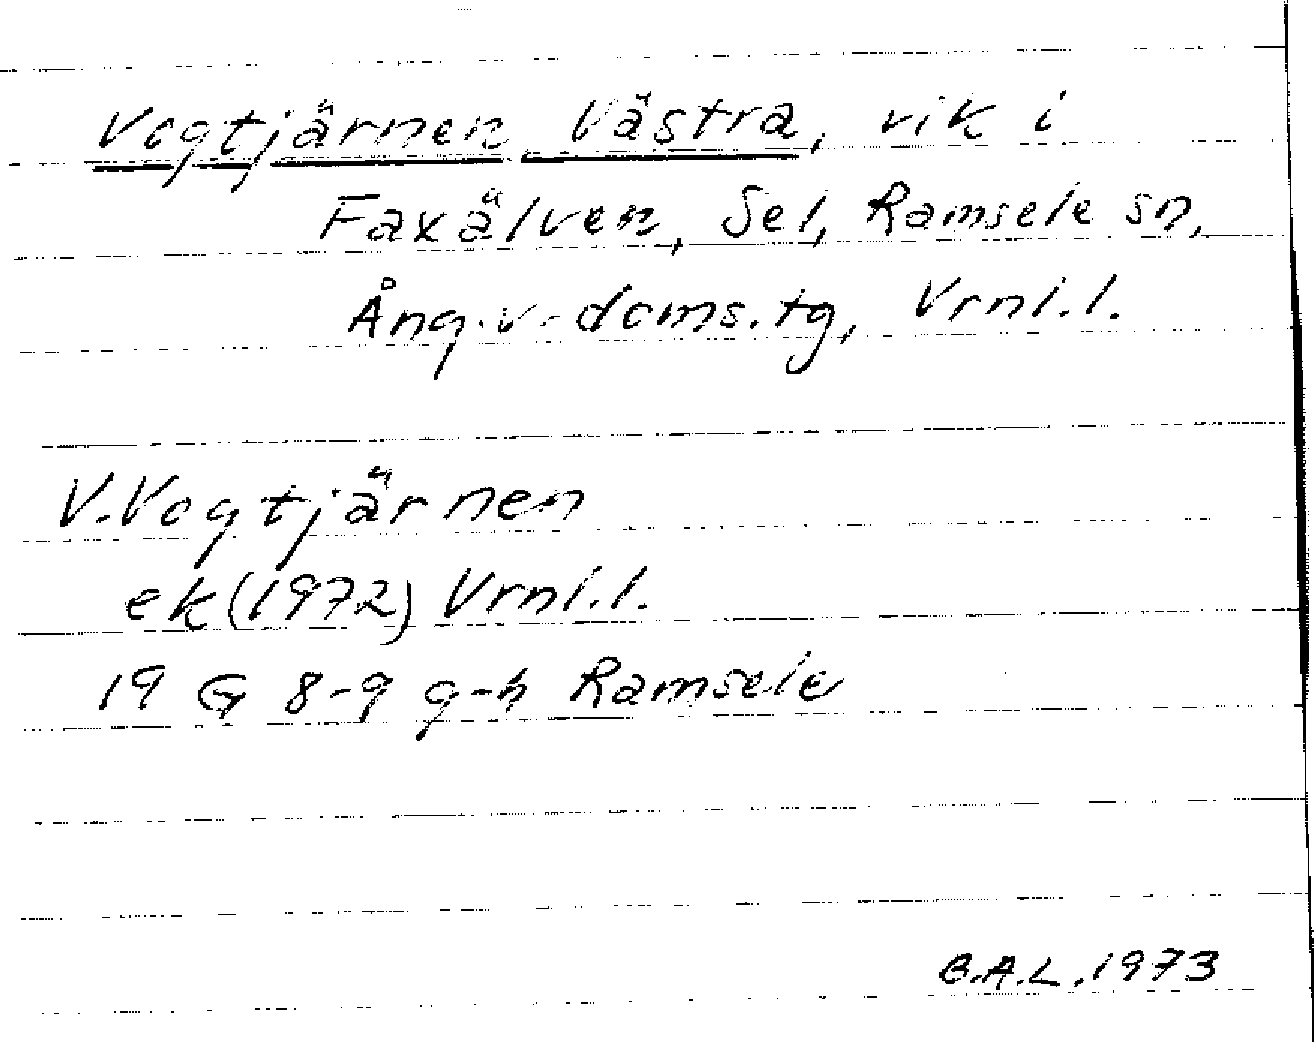 Vogtjärnen Västra, vik i
Faxälven, Sel, Ramsele sn,
Ång.v. doms.tg, Vrnl.l.
V.Vogtjärnen
ek(1972) Vrnl.l.
19 G 8-9 g-h Ramsele
B.A.L.,1973